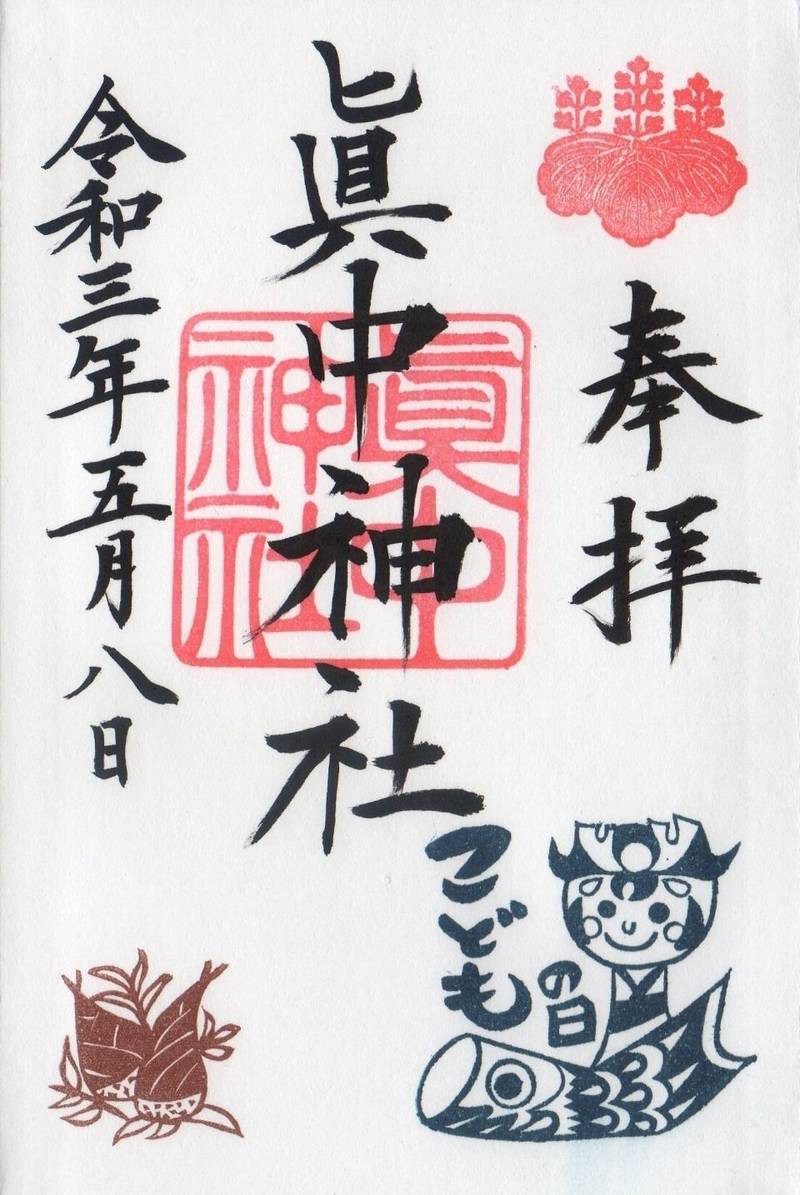 奉拝
眞中神社
眞中神社
令和三年五月八日
こどもの日